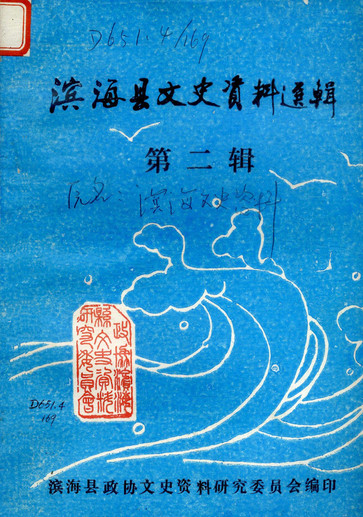 D651.4/169
滨海县文史資料選輯
第二辑
滨海文史资料
政协滨海
县文史资料
研究委员会
D651.4
169
滨海县政协文史资料研究委员会编印